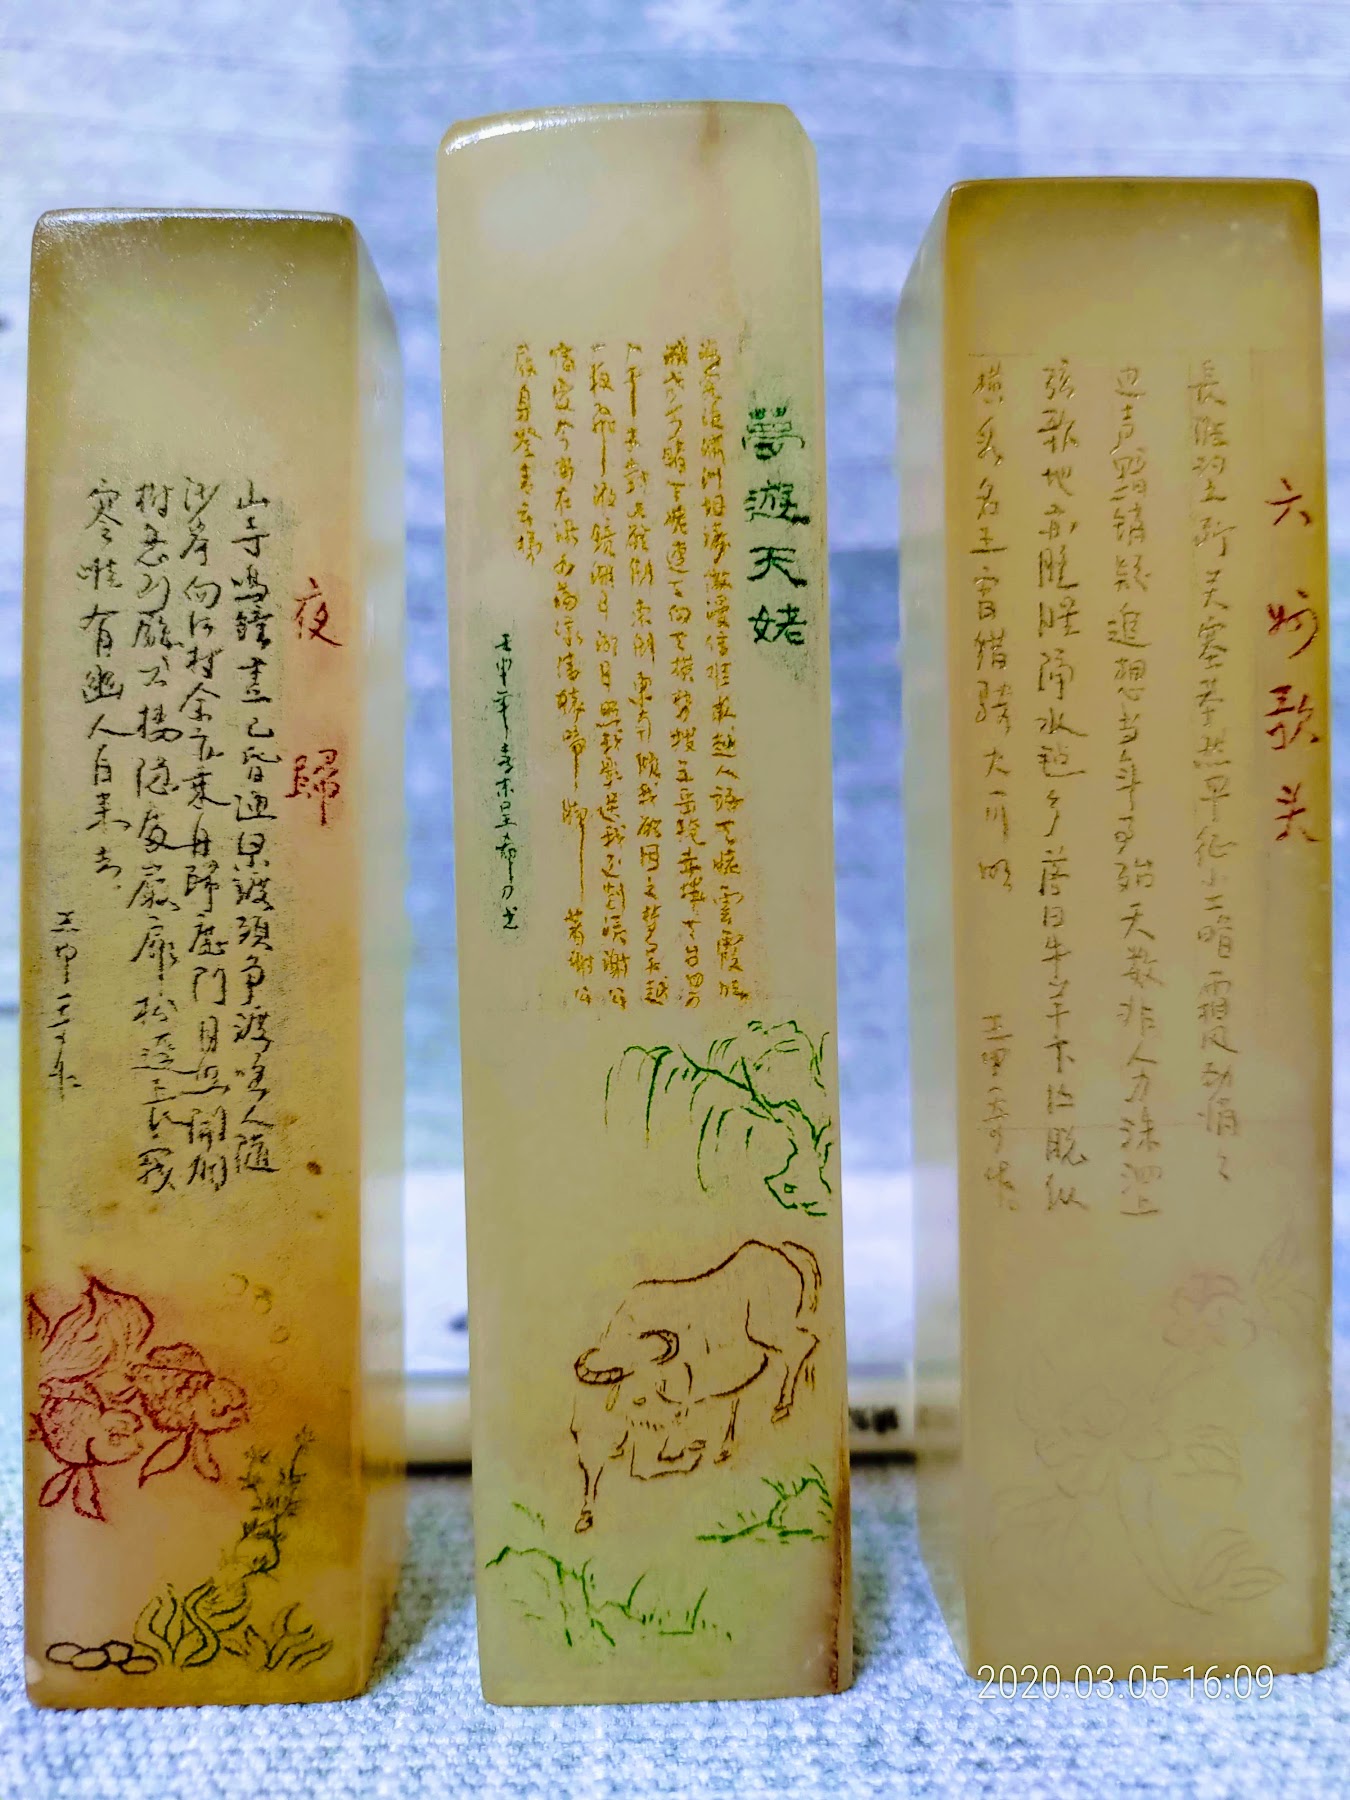 夜歸
山寺鳴鐘晝已昏漁梁渡頭爭渡喧人隨
沙岸向江村余亦乘舟歸鹿門月照開烟
樹忽到龐公棲隱處巖扉松逕長寂
寥唯有幽人自來去
壬申
夢遊天姥
海客談瀛洲烟濤微漫信難求越人語天姥雲霞明
滅或可睹天姥連天向天橫勢拔五岳掩赤城天台四萬
八千丈對此欲倒東南傾我欲因之夢吳越
一夜飛渡鏡湖月湖月照我影送我至剡溪謝公
宿處今尚在淥水蕩漾清猿啼脚著謝公
屐身登青雲梯
壬申年
六州歌关
長淮望断关塞莽然平征尘暗霜风劲悄
边声黯销凝追想当年事殆天数非人力洙泗上
弦歌地亦膻腥隔水毡乡落日牛羊下区脱纵
横看名王宵猎骑火一川明
壬申
2020.03.05 16:09